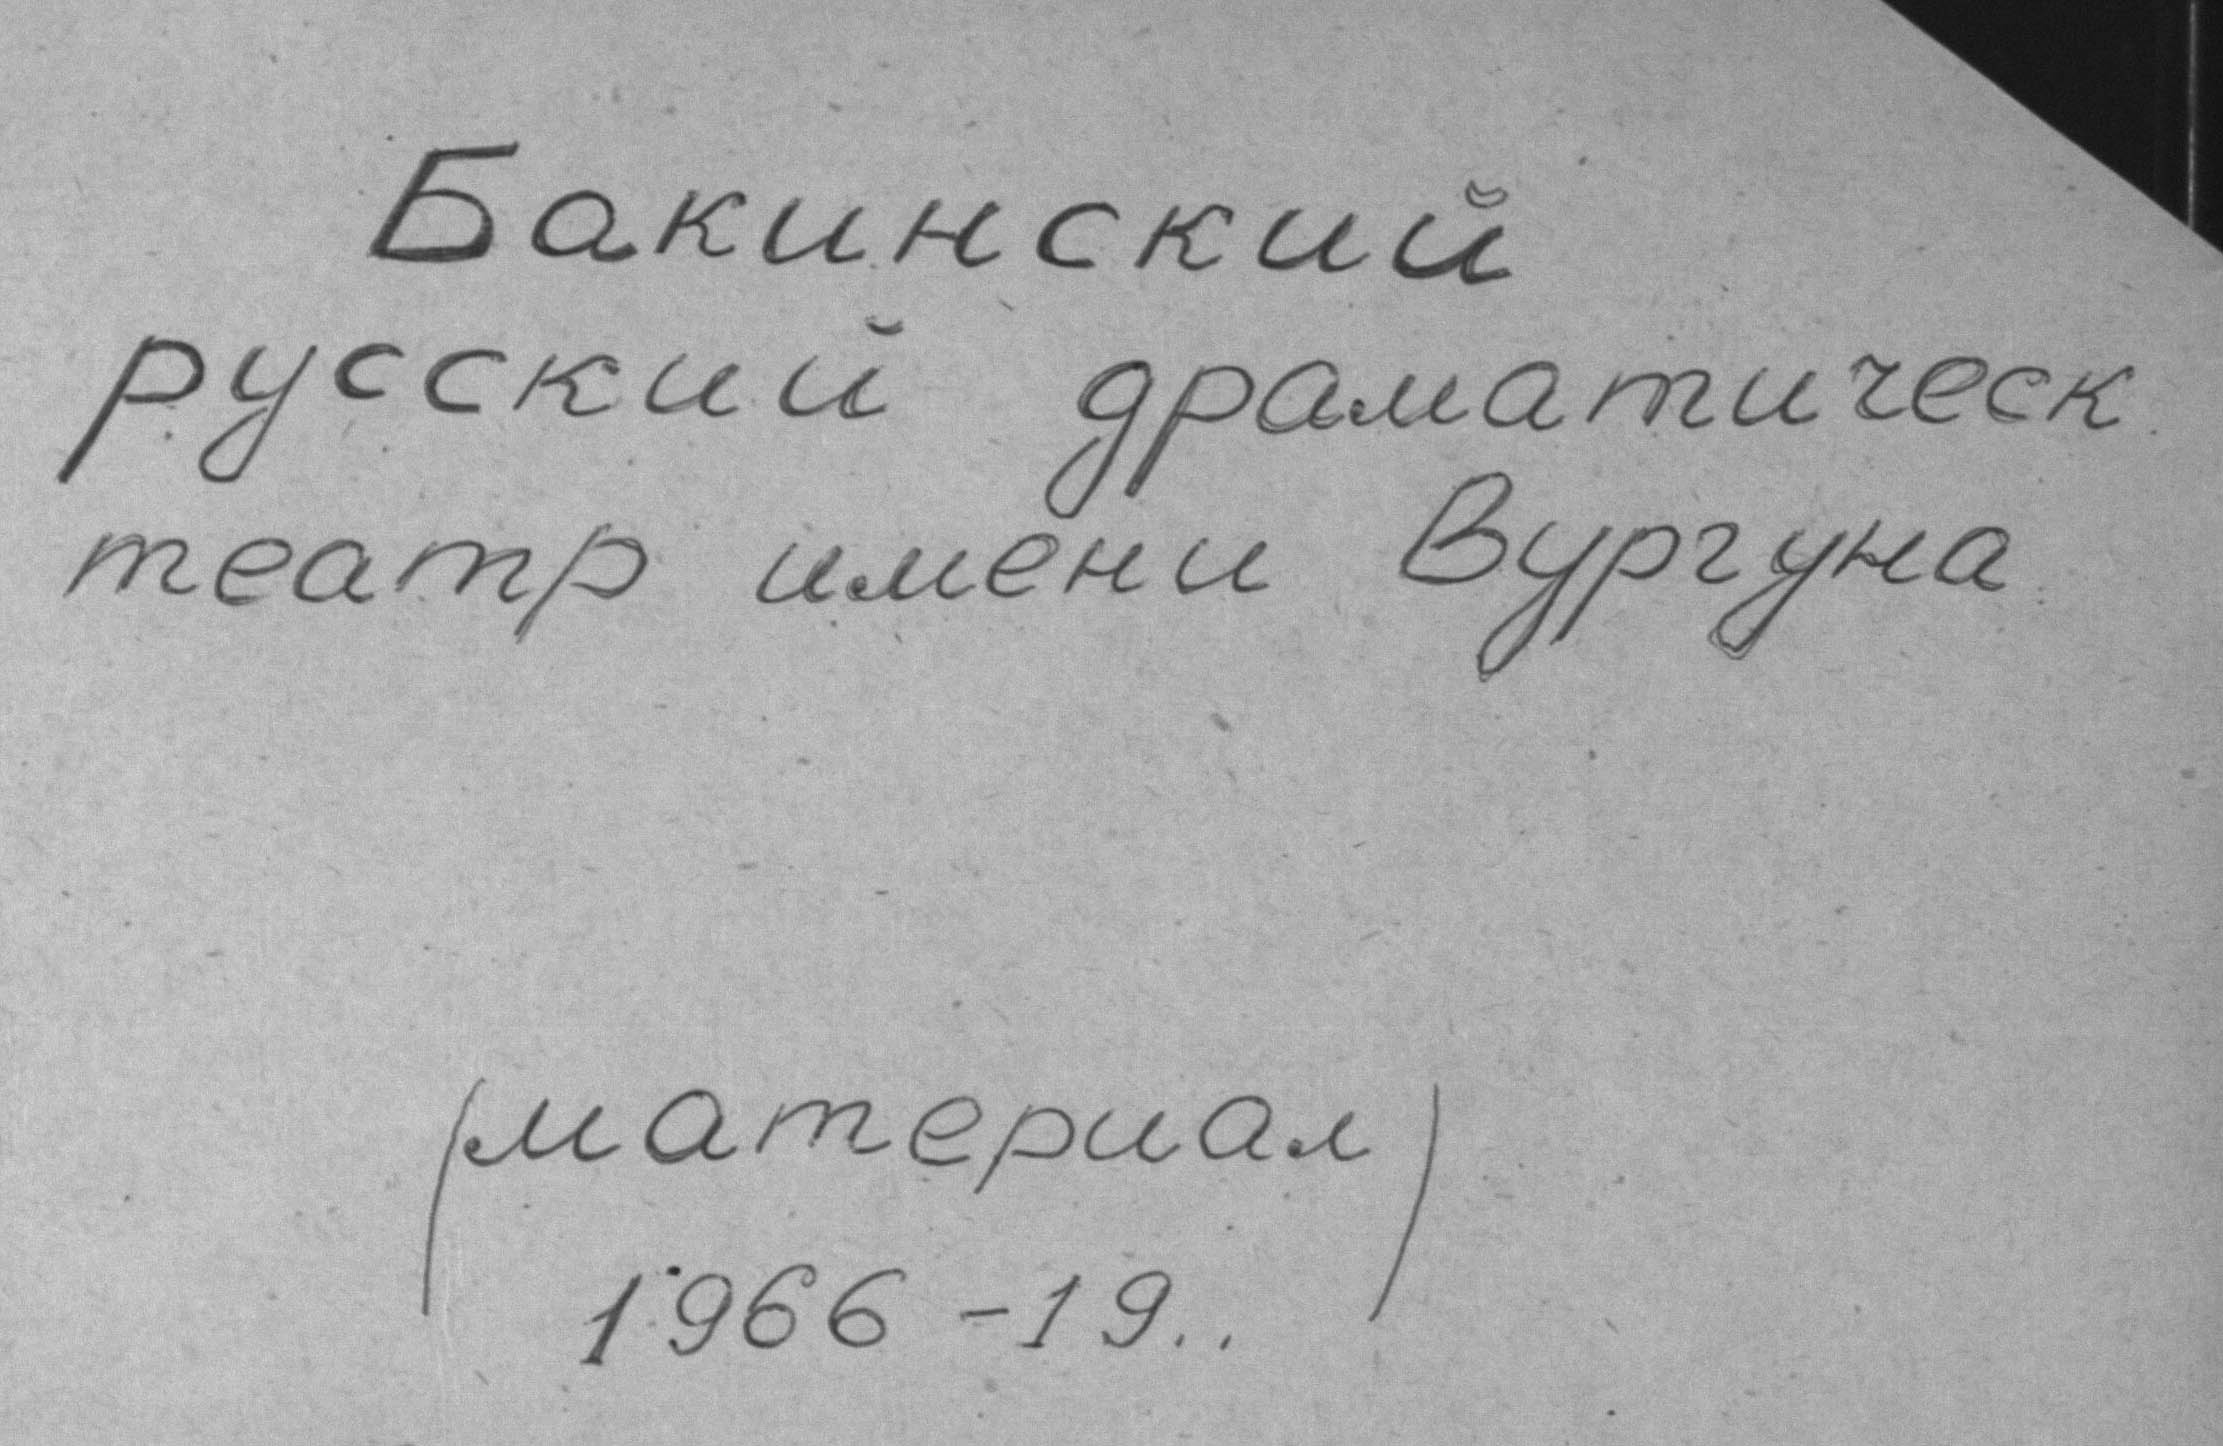 Бакинский
русский драматическ
театр имени Вургуна
(материал)
1966-19..